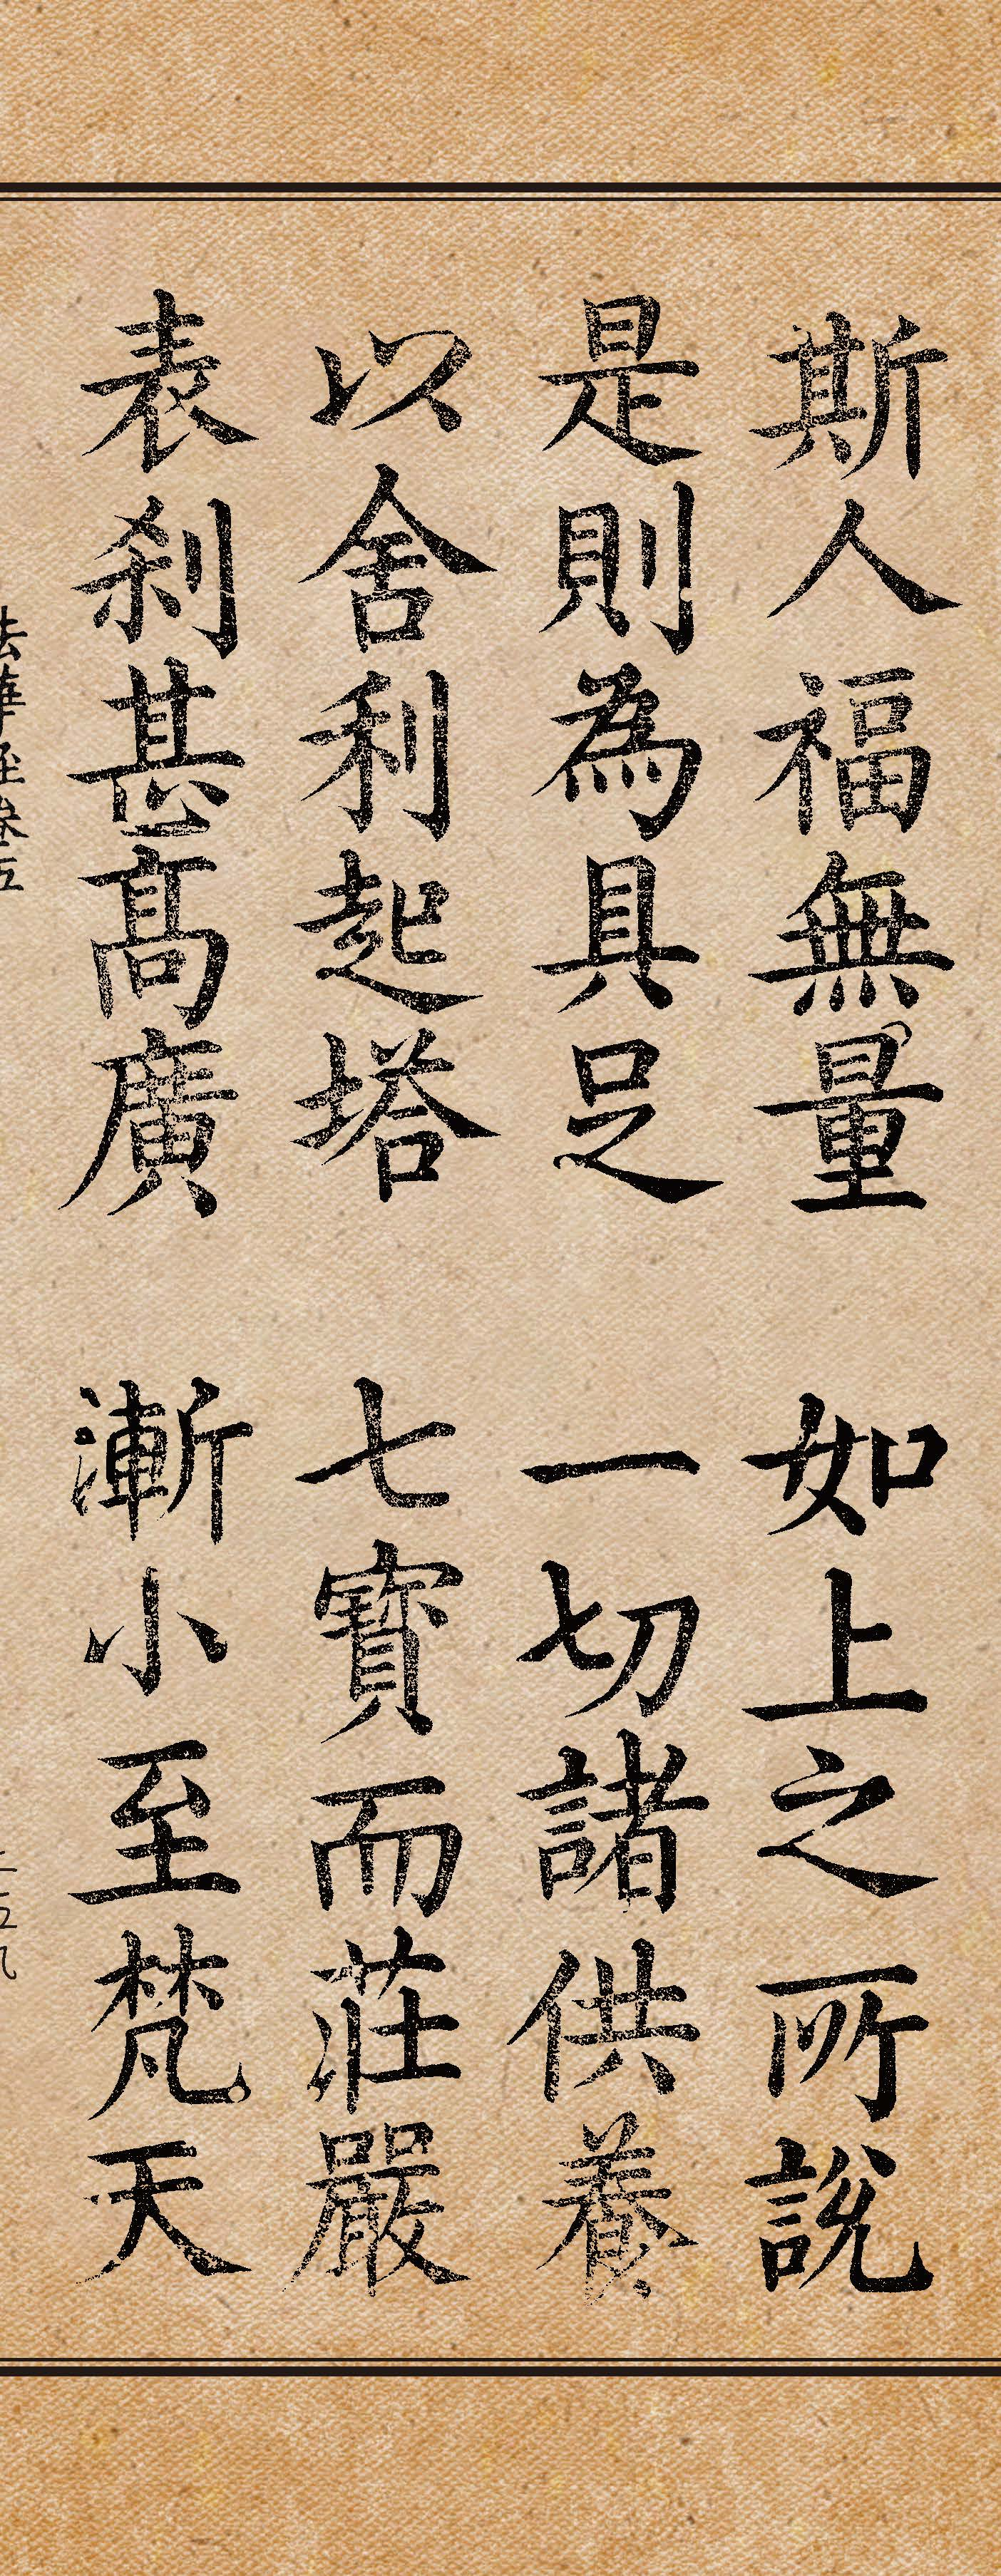 斯人福無量 如上之所說
是則為具足 一切諸供養
以舍利起塔 七寶而莊嚴
表剎甚高廣 漸小至梵天
法華經卷五